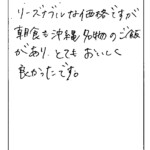 リーズナブルな価格ですが
朝食も沖縄名物のご飯
があり、とてもおいしく
良かったです。